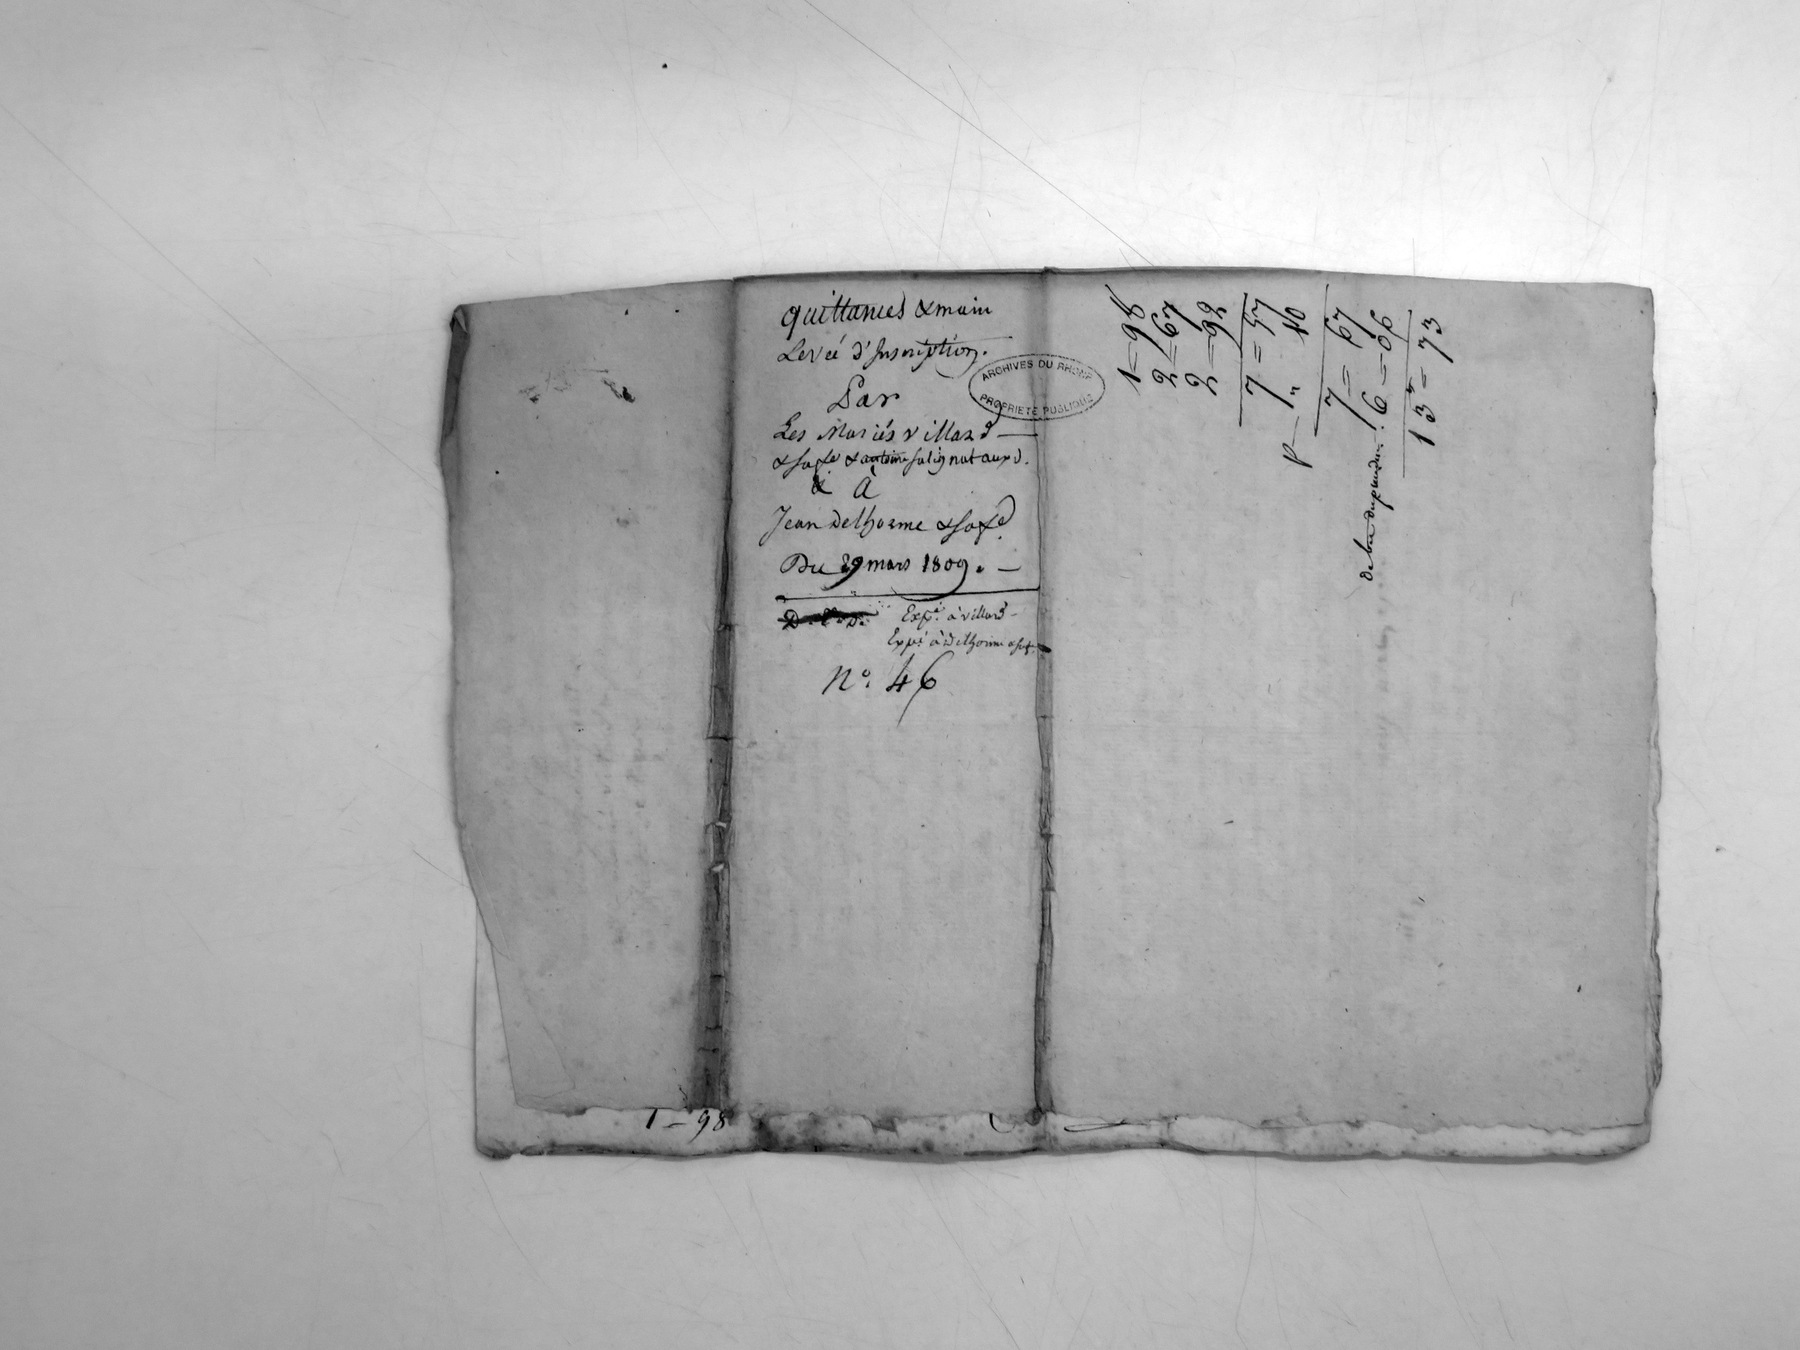 quittances & main
Levée d'Inscription.
Par
Les Mariés villard
& sa fe & antoine salignat aux d.
& à
Jean Delhorme & sa fe
Du 29 mars 1809.
Exp. à villard
Exp. à Delhorme
n.° 46
ARCHIVES DU RHONE
PROPRIETE PUBLIQUE
1 = 98
2 = 67
2 = 92
7 = 57
" 10
7 = 67
6 = 06
13 = 73
1 - 98